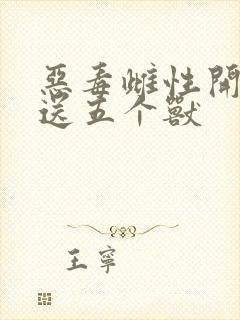 惡毒雌性開
送五个獸
王寧